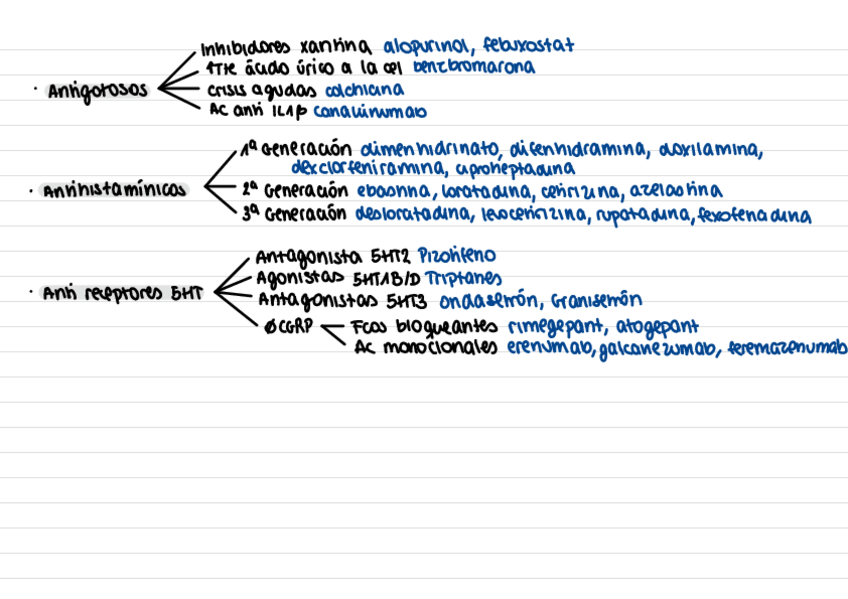 Inhibidores xantina alopurinol, febuxostat
↑TTE ácido úrico a la cel benzbromarona
· Antigotosos
crisis agudas colchicina
AC anti IL1β canakinumab
1ª Generación dimenhidrinato, difenhidramina, doxilamina,
dexclorfeniramina, ciproheptadina
· Antihistamínicos
2ª Generación ebastina, loratadina, cetirizina, azelastina
3ª Generación desloratadina, levocetirizina, rupatadina, fexofenadina
Antagonista 5HT2 Pizotifeno
Agonistas 5HT1B/D Triptanes
· Anti receptores 5HT
Antagonistas 5HT3 ondasetrón, Granisetrón
ØCGRP
Fcos bloqueantes rimegepant, atogepant
Ac monoclonales erenumab, galcanezumab, feremazenumab